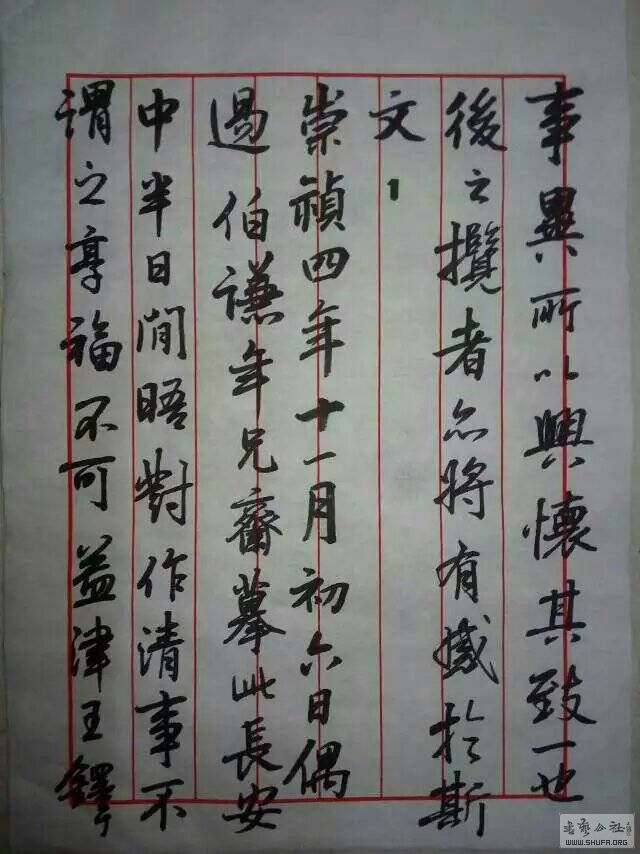 事異所以興懷其致一也
後之攬者亦將有感於斯
文
崇禎四年十一月初六日偶
過伯謙年兄齋摹此長安
中半日閒晤對作清事不
謂之享福不可益津王鐸
书艺公社
WWW.SHUFA.ORG